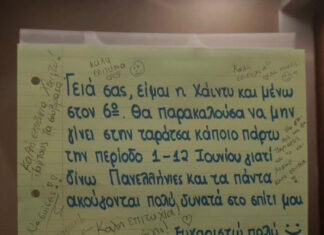 Καλή
επιτυχία
Γειά σας, είμαι η Χάιντυ και μένω
στον 6º. Θα παρακαλούσα να μην
γίνει στην ταράτσα κάποιο πάρτυ
την περίοδο 1-12 Ιουνίου γιατί
δίνω Πανελλήνιες και τα πάντα
ακούγονται πολύ δυνατά στο σπίτι μου
Καλή επιτυχία!
Ευχαριστώ πολύ